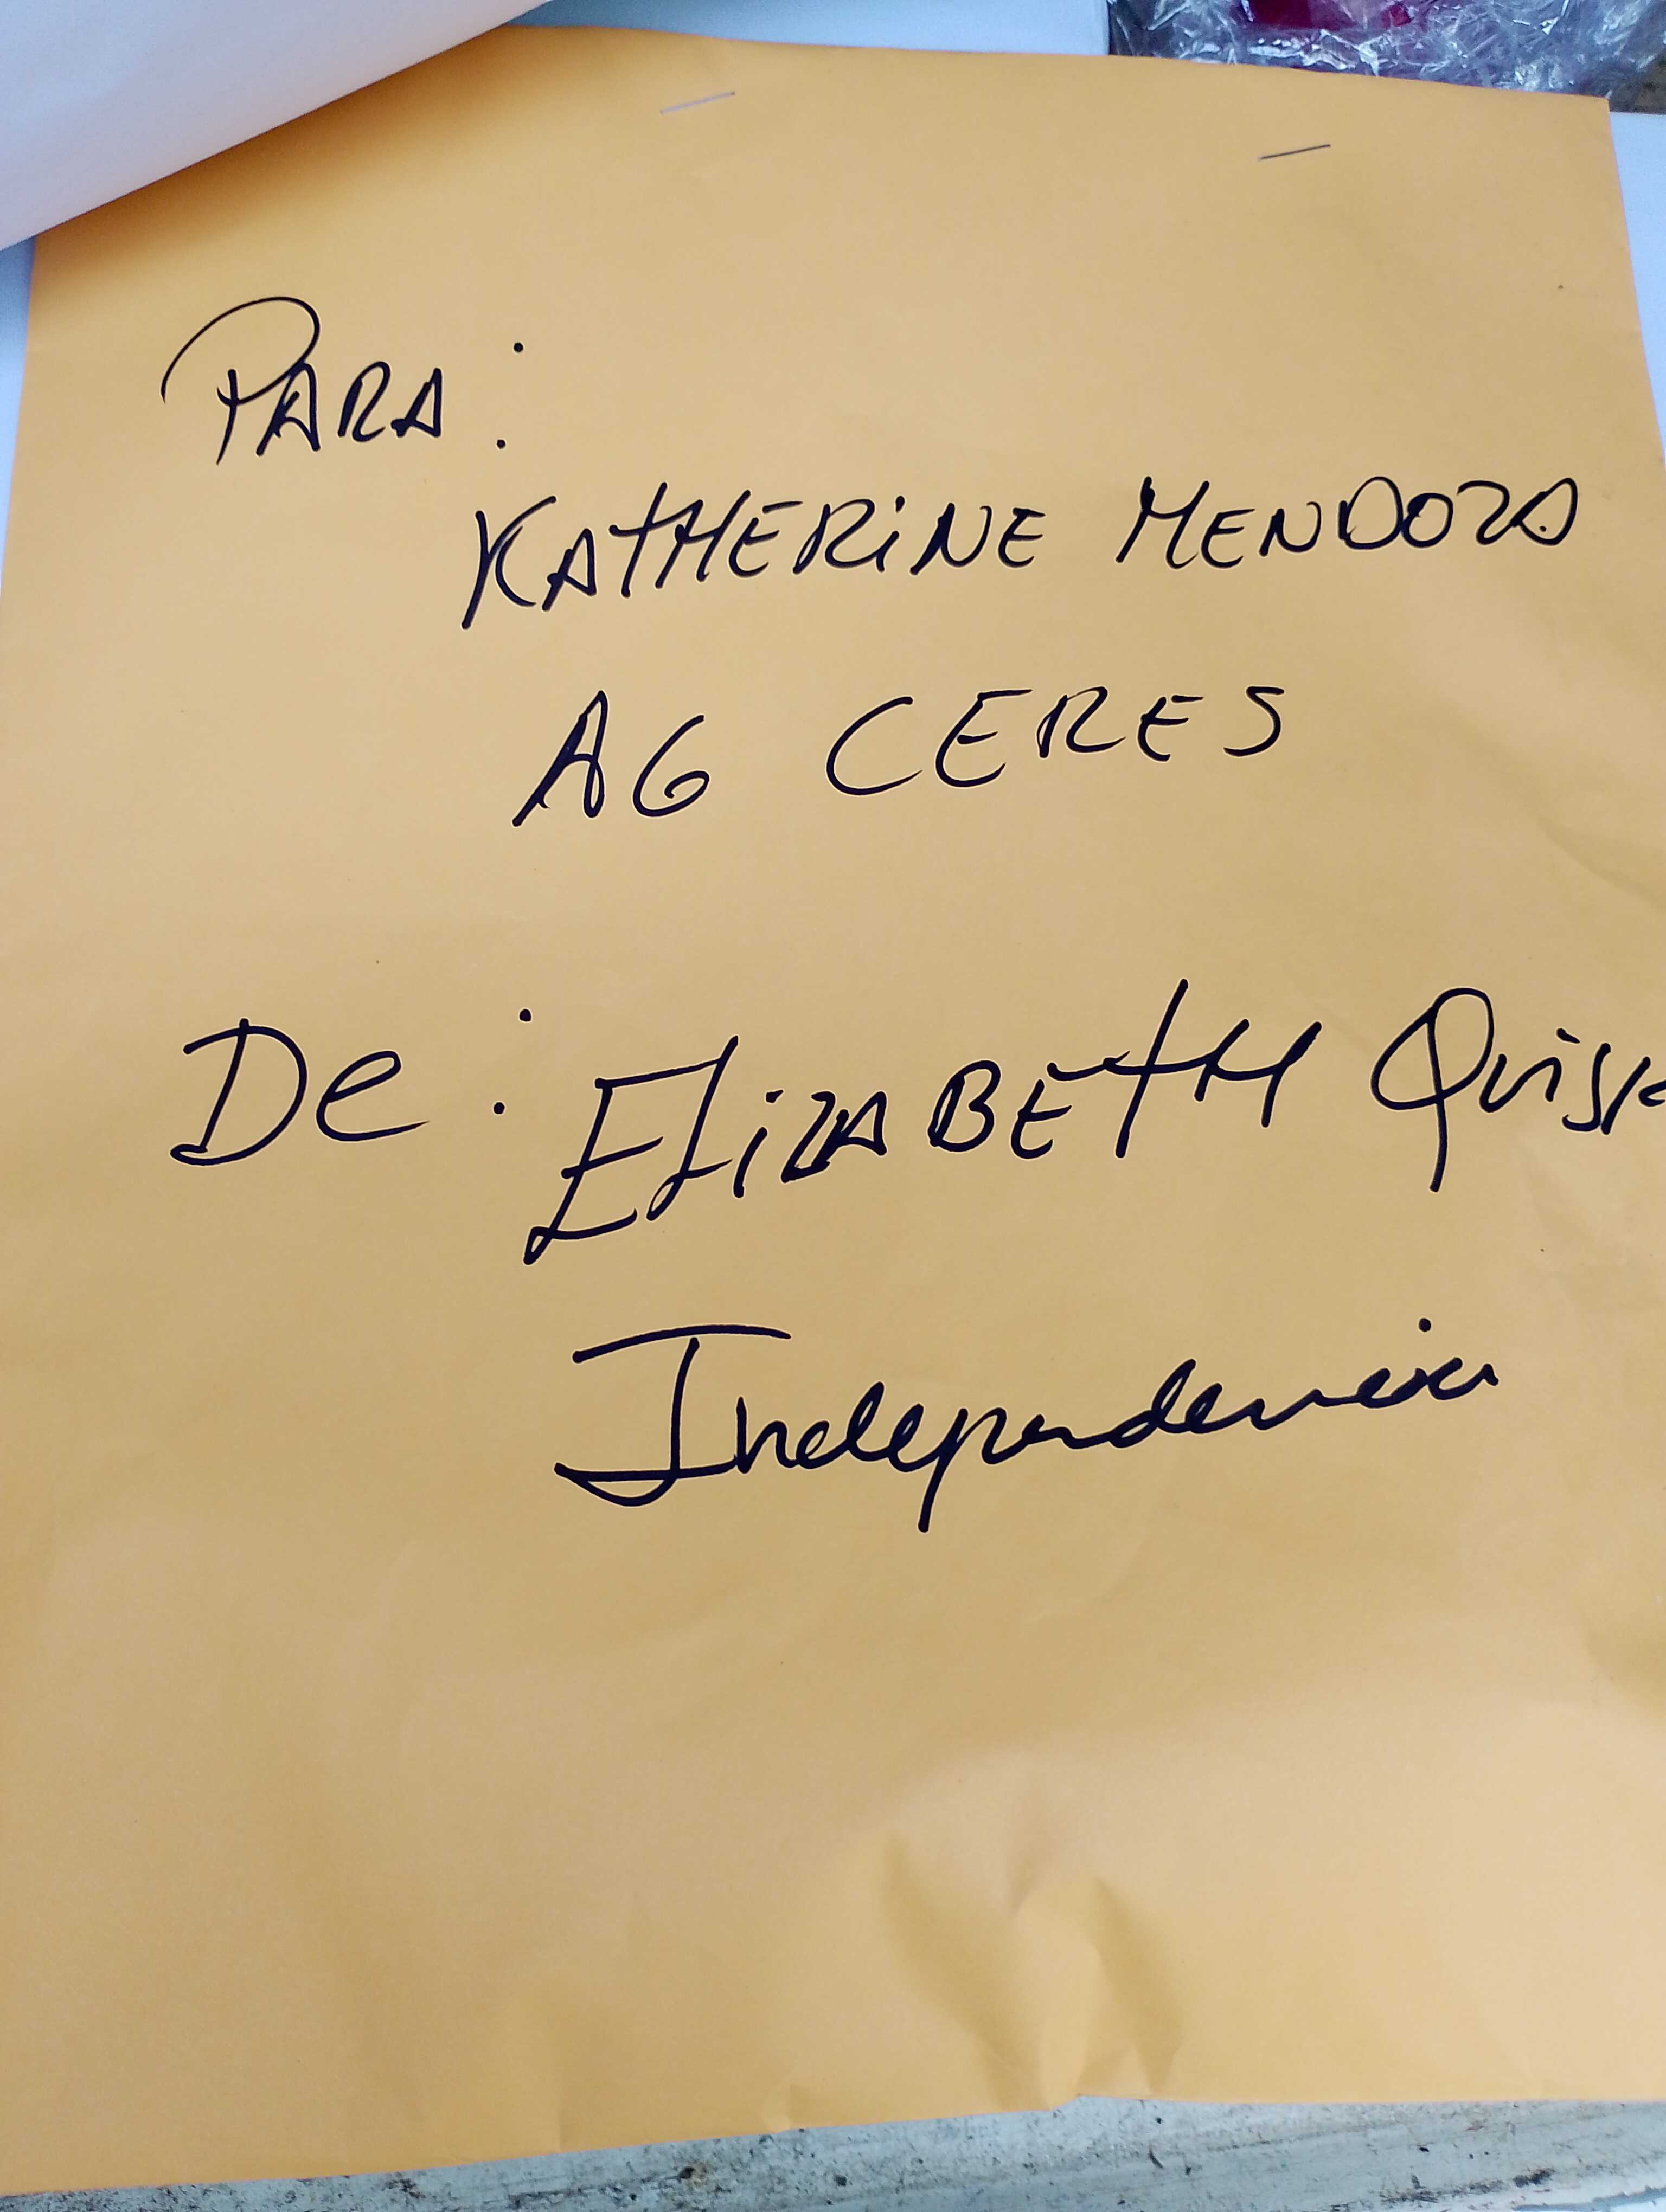 PARA:
KATHERINE MENDOZA
AG CERES
De: ELIZABETH
Independencia